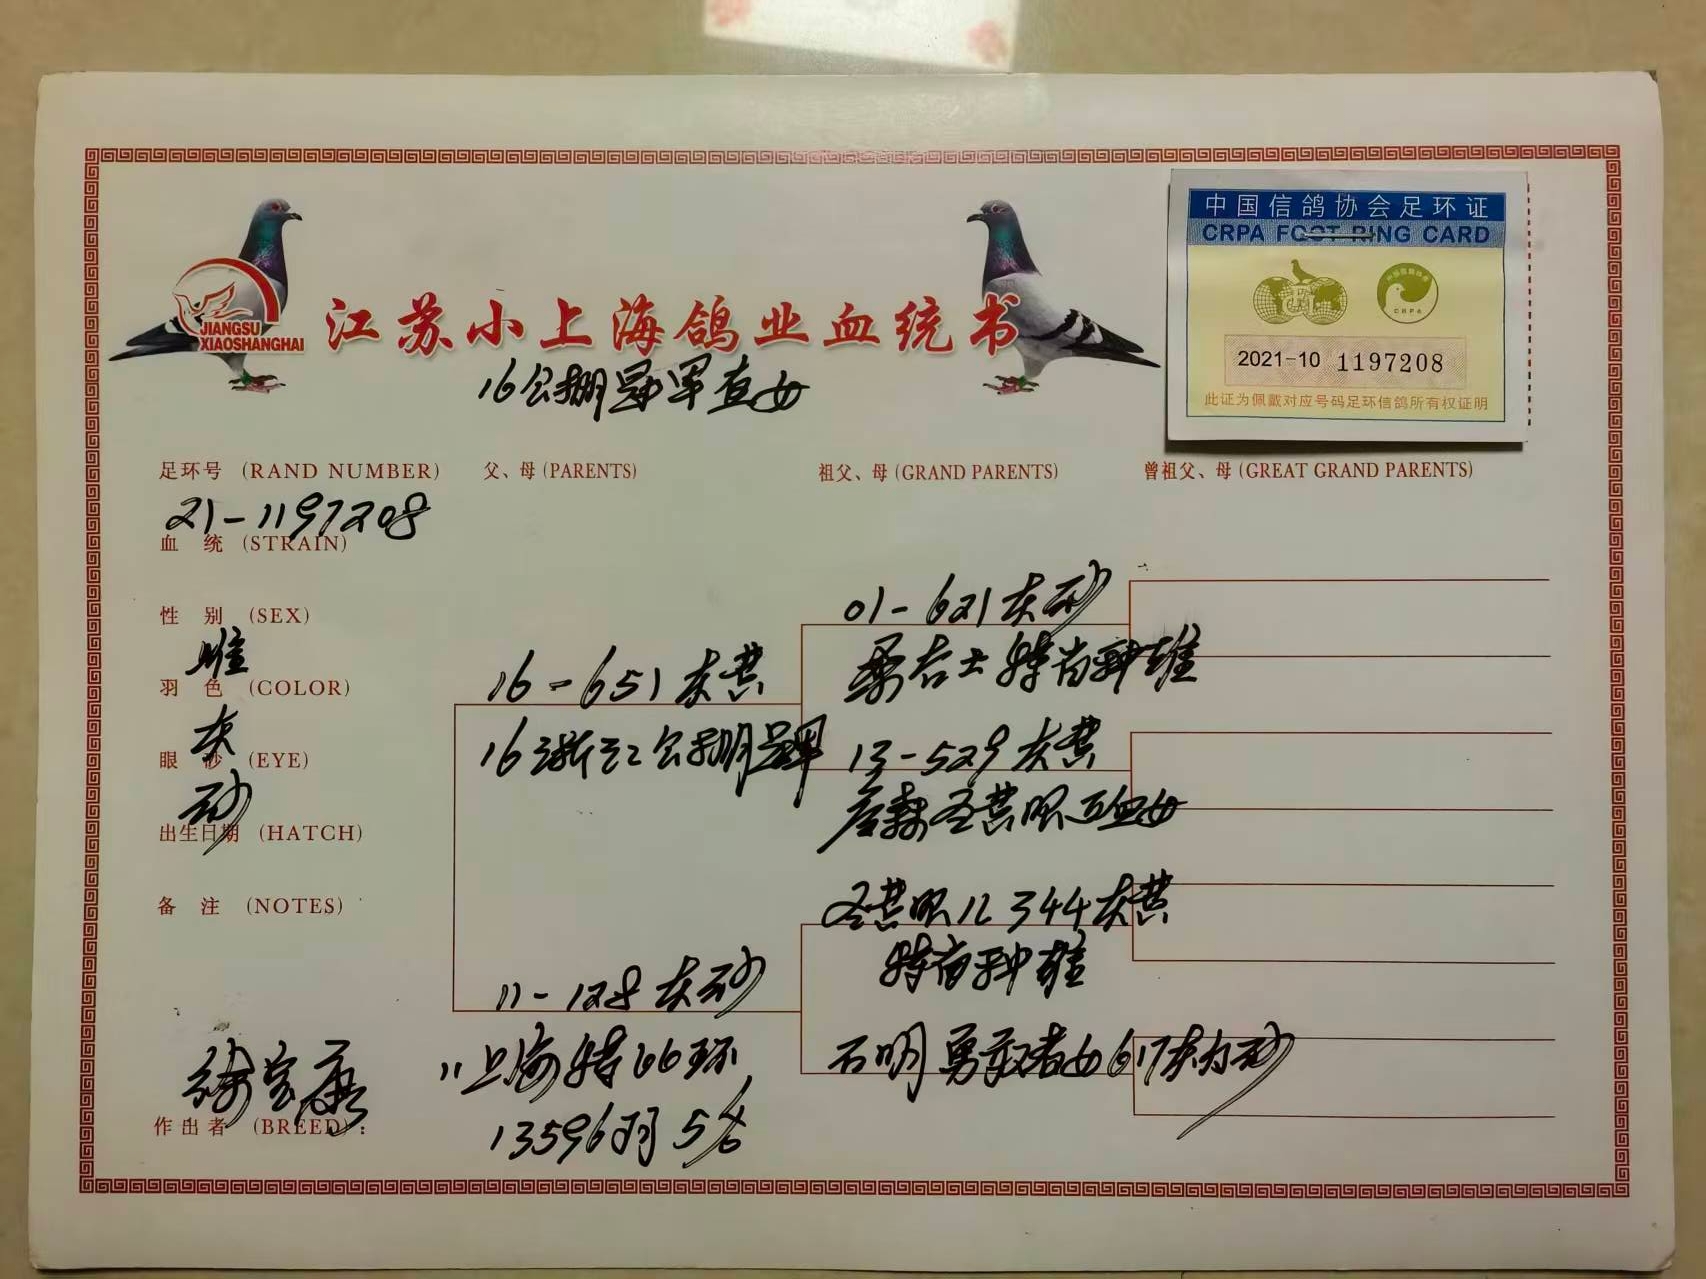 中国信鸽协会足环证
CRPA FOOT RING CARD
CRPA
2021-10 1197208
此证为佩戴对应号码足环信鸽所有权证明
JIANGSU
XIAOSHANGHAI
江苏小上海鸽业血统书
16公棚冠军直女
足环号 (RAND NUMBER) 父、母 (PARENTS) 祖父、母 (GRAND PARENTS) 曾祖父、母 (GREAT GRAND PARENTS)
21-1197208
血 统 (STRAIN)
性 别 (SEX)
雌
羽 色 (COLOR)
灰
眼 砂 (EYE)
砂
出生日期 (HATCH)
备 注 (NOTES)
作出者 (BREED):
16-651灰黄
16浙江公棚冠军
11-128灰砂
11上海特66环
13596羽5名
01-621灰砂
桑杰士特留种雄
13-529灰黄
344灰黄
特留种雄
石明勇敢者女617灰白砂